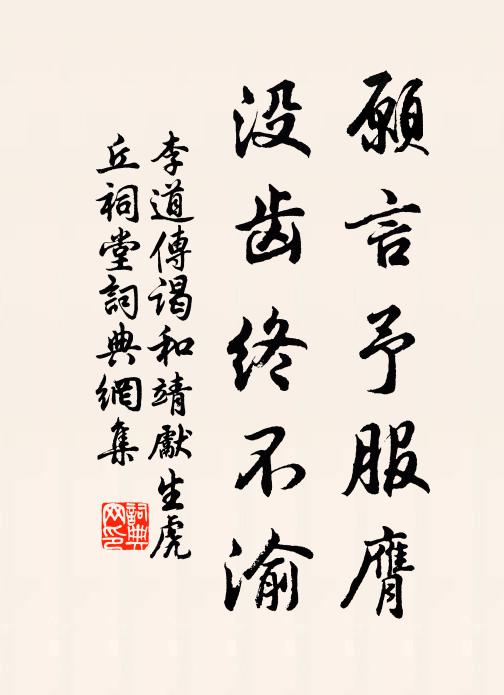 願言予服膺
没齿終不渝
李道傳謁和靖獻生虎
丘祠堂詞典網集
詞典网印